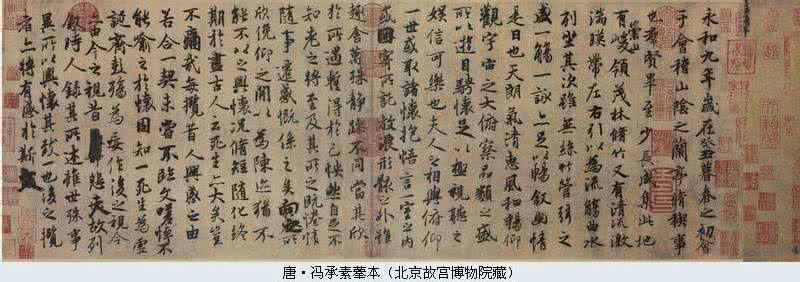 永和九年歲在癸丑暮春之初會
于會稽山陰之蘭亭脩稧事
也羣賢畢至少長咸集此地
有崇山峻領茂林脩竹又有清流激
湍暎帶左右引以為流觴曲水
列坐其次雖無絲竹管弦之
盛一觴一詠亦足以暢叙幽情
是日也天朗氣清惠風和暢仰
觀宇宙之大俯察品類之盛
所以遊目騁懷足以極視聽之
娛信可樂也夫人之相與俯仰
一世或取諸懷抱悟言一室之內
或因寄所託放浪形骸之外雖
趣舍萬殊靜躁不同當其欣
於所遇暫得於己怏然自足不
知老之將至及其所之既惓情
隨事遷感慨係之矣向之所
欣俛仰之閒以為陳迹猶不
能不以之興懷況脩短隨化終
期於盡古人云死生亦大矣豈
不痛哉每攬昔人興感之由
若合一契未嘗不臨文嗟悼不
能喻之於懷固知一死生為虛
誕齊彭殤為妄作後之視今
亦由今之視昔悲夫故列
叙時人錄其所述雖世殊事
異所以興懷其致一也後之攬
者亦將有感於斯文
唐·冯承素摹本（北京故宫博物院藏）